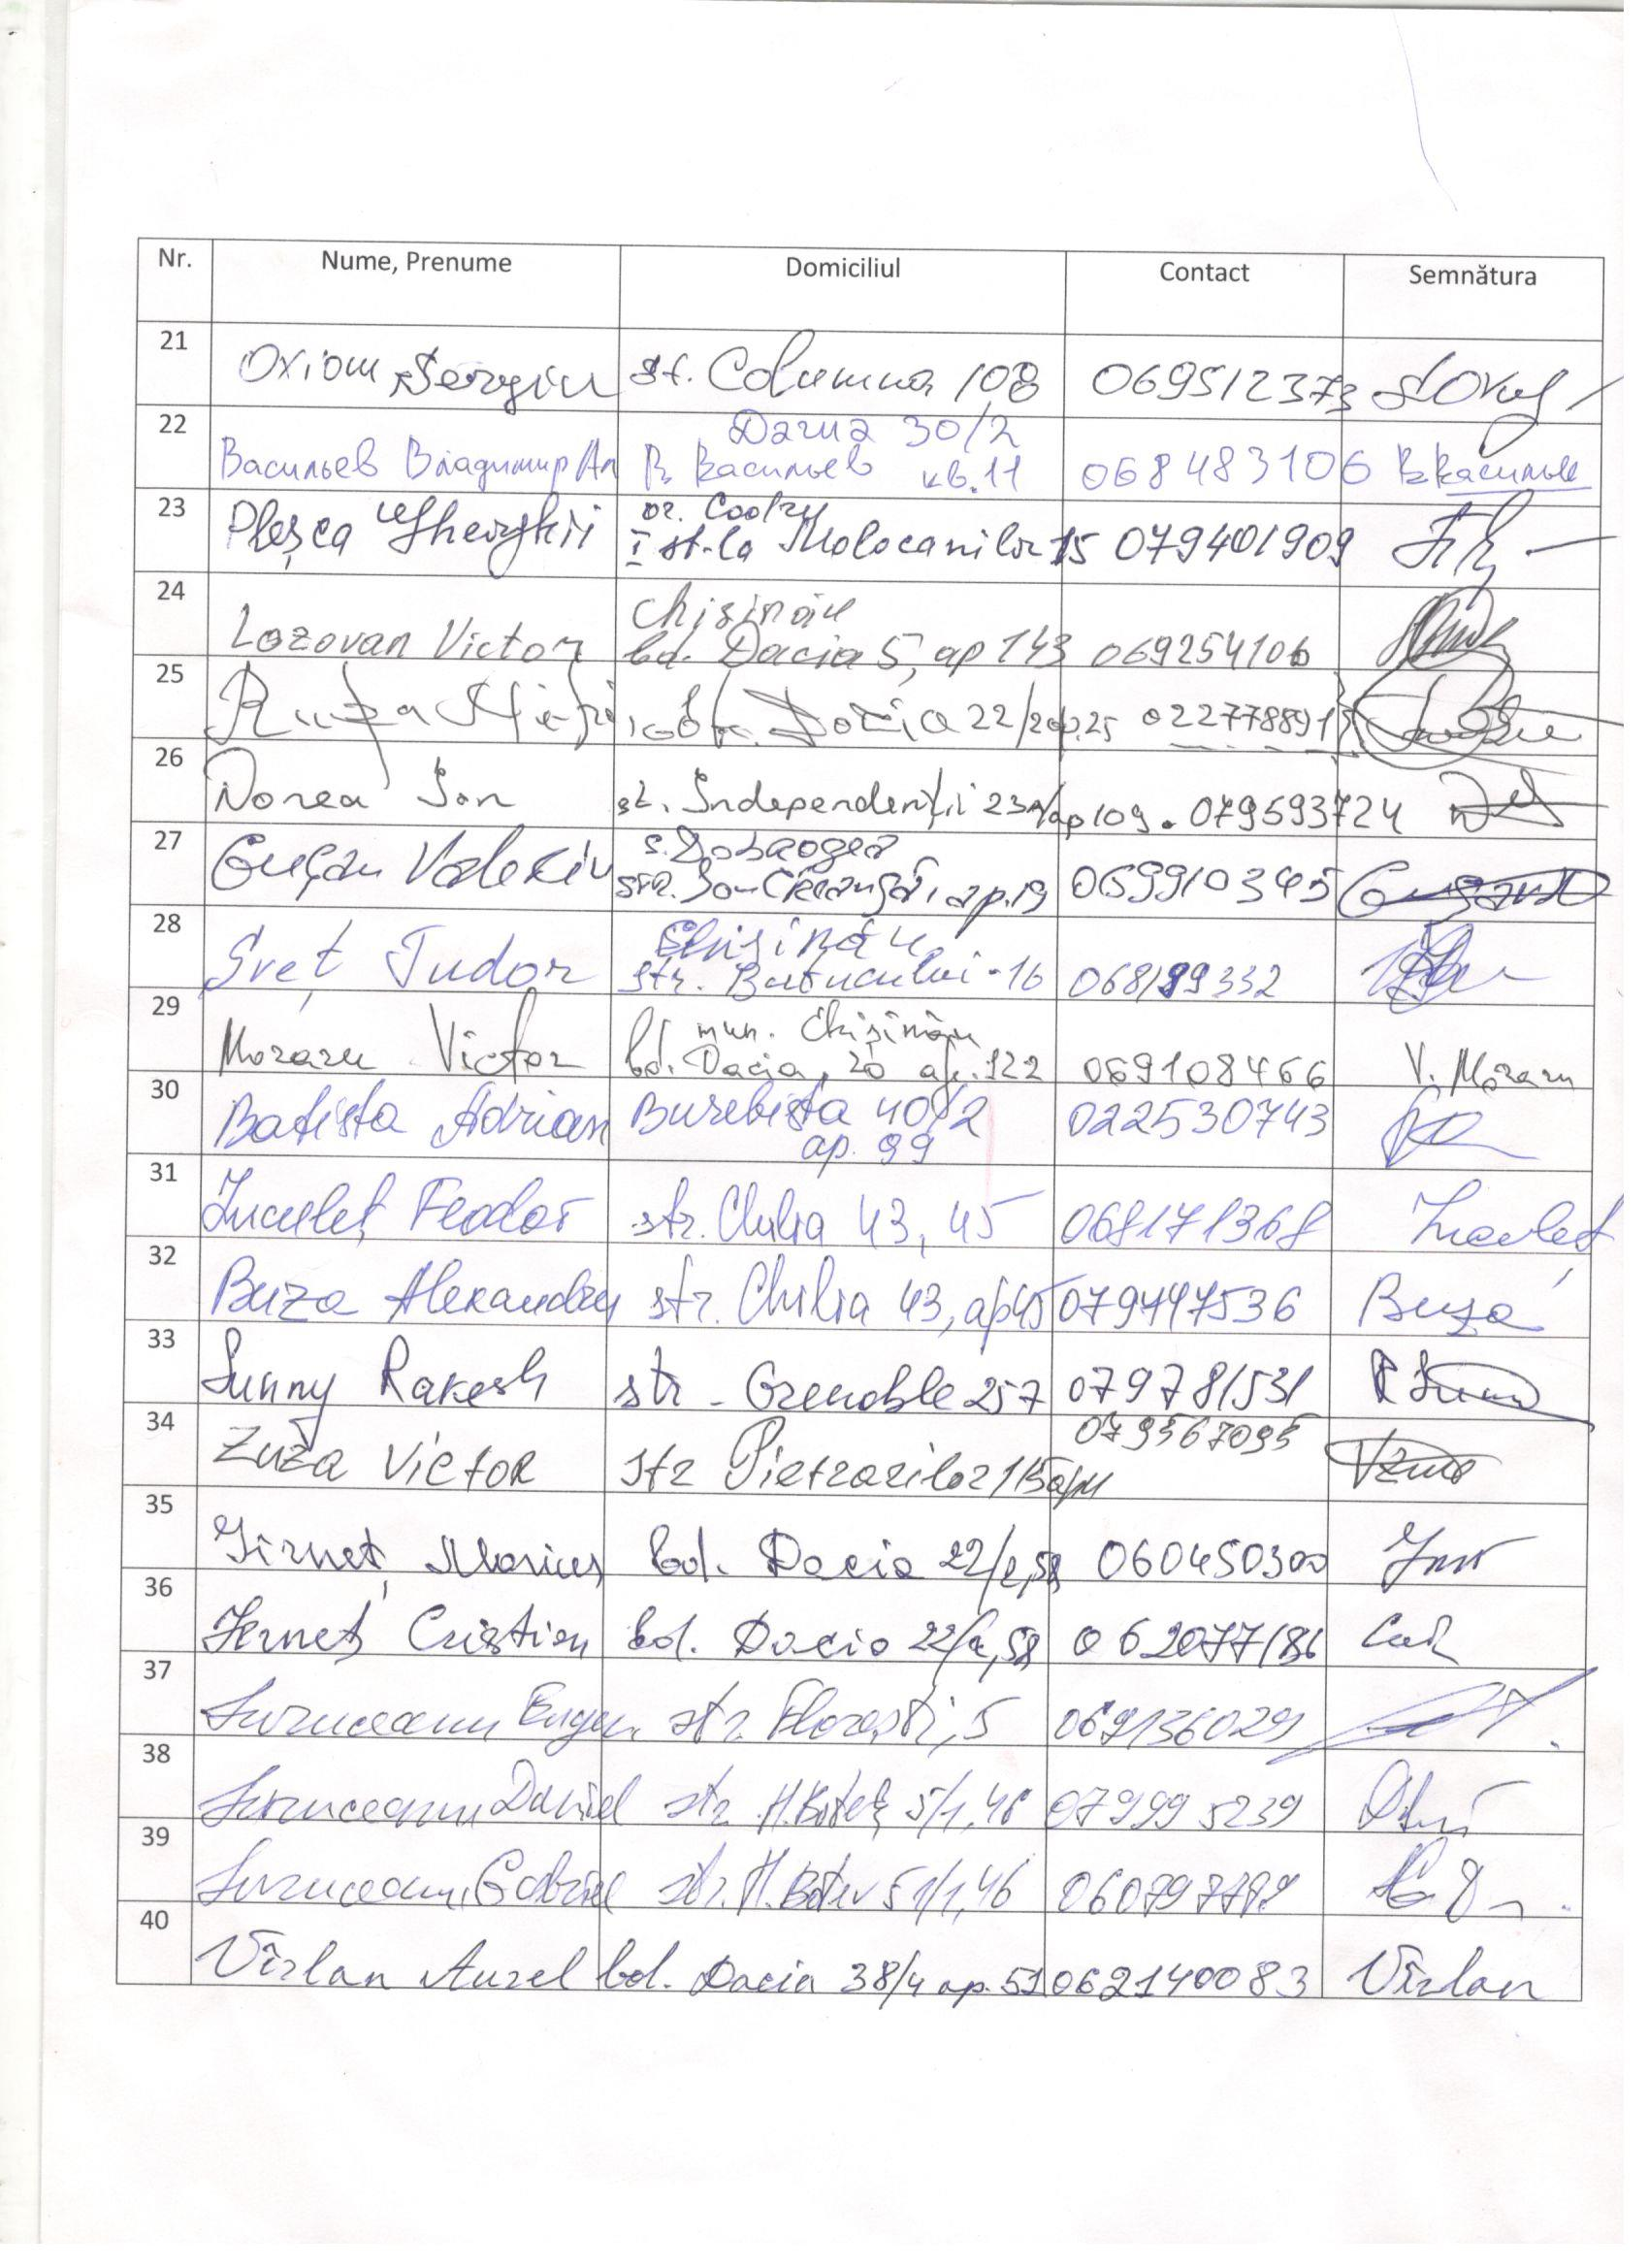 Nr. Nume, Prenume Domiciliul Contact Semnătura
21 Oxiom Sergiu st. Columna 108 069512373
Dacia 30/2
22 Васильев Владимир Ан В. Васильев кв. 11 068483106 В. Васильев
or. Codru
23 Pleșca Gheorghii I st-la Molocanilor 15 079401909
Chișinău
24 Lozovan Victor bd. Dacia 5, ap 143 069254106
25 Ruza Dacia 22/2 ap. 25 022778891
26 Norea Ion st. Independenții ap 109. 079593724
s. Dobrogea
27 Gușan Valeriu str. Ion Creangă, ap. 19 069910345
Chișinău
28 Sveț Tudor str. Butucului - 16 068199332
mun. Chișinău
29 Moraru Victor bd. Dacia, 20 ap. 122 069108466 V. Moraru
30 Batista Adrian Burebista 40/2 022530743
ap. 99
31 Inculeț Feodor str. Chilia 43, 45 068171368 Inculeț
32 Buza Alexandru str. Chilia 43, ap 45 079747536 Buza
33 Sunny Rakesh str - Grenoble 257 079781531
079567095
34 Zuza Victor str Pietrarilor
35 Jirneț Marius bd. Dacia 22/2, 58 060450300
36 Jerneț Cristian bd. Dacia 22/2, 58 062077186
37 Suruceanu Eugen str. Florești, 5 069136029
38 Suruceanu Daniel str. H. Botev 5/1, 46 079995239
39 Suruceanu Gabriel str. H. Botev 5/1, 46
40 Vîrlan Aurel bd. Dacia 38/4 ap. 51 062140083 Vîrlan